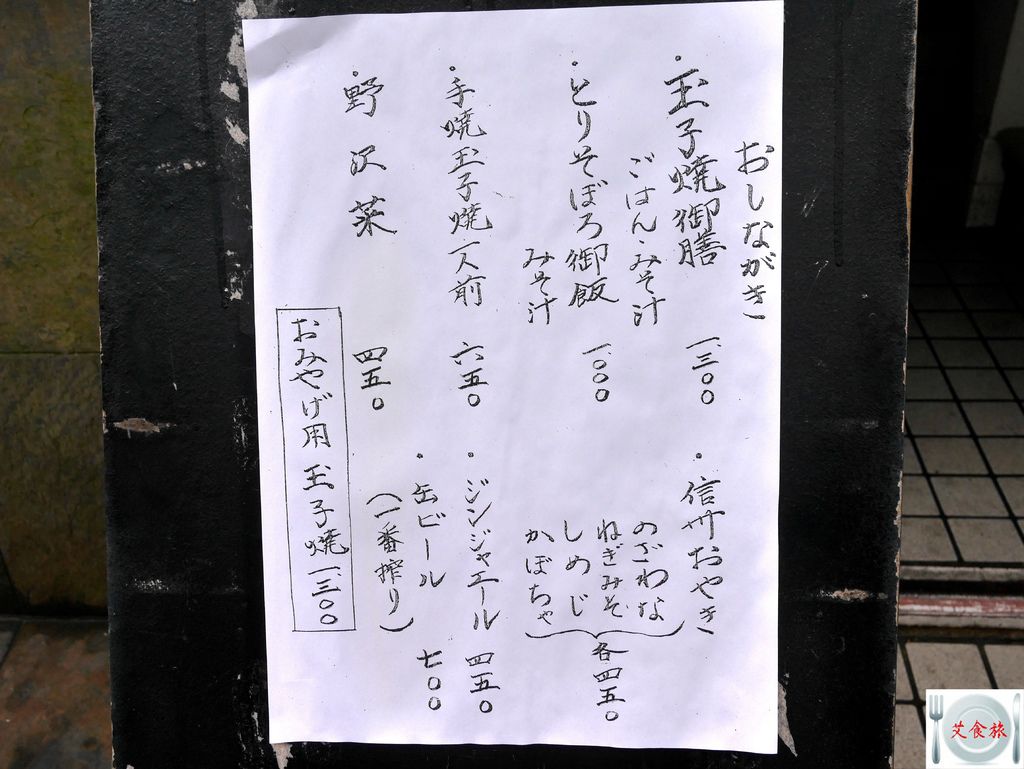 おしながき
・玉子焼御膳 一、三〇〇
ごはん・みそ汁
・とりそぼろ御飯 一、〇〇〇
みそ汁
・手焼玉子焼一人前 六五〇
・野沢菜 四五〇
・信州おやき
のざわな
ねぎみそ
しめじ
かぼちゃ
各四五〇
・ジンジャエール 四五〇
・缶ビール 七〇〇
(一番搾り)
おみやげ用 玉子焼 一、三〇〇
艾食旅